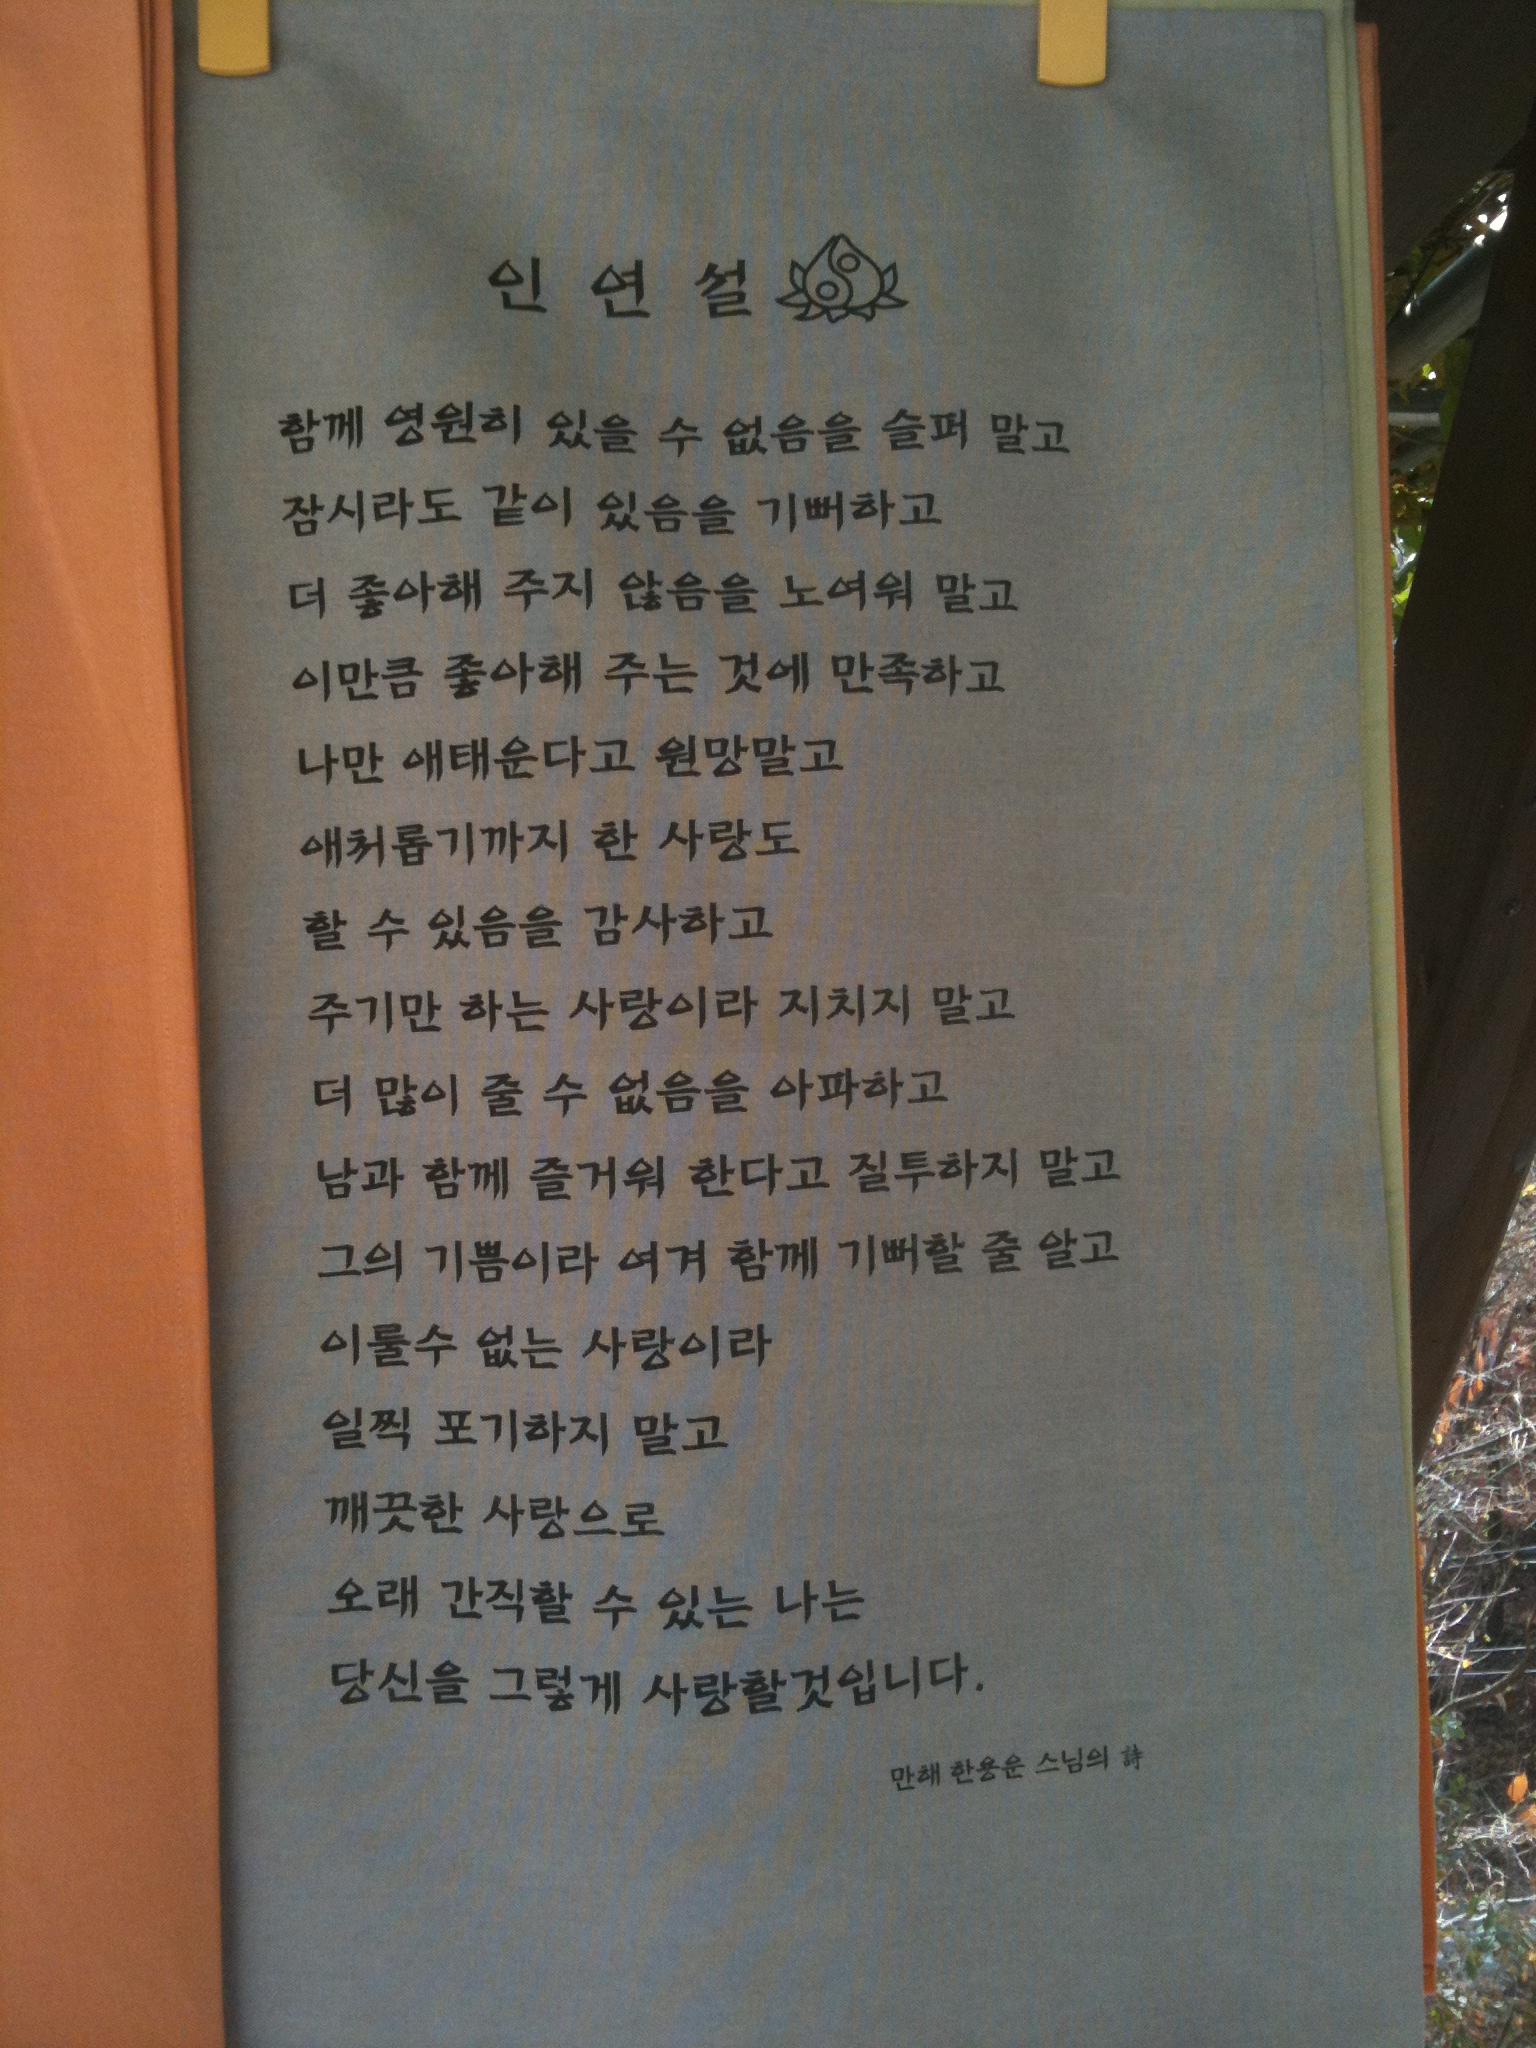 인 연 설
함께 영원히 있을 수 없음을 슬퍼 말고
잠시라도 같이 있음을 기뻐하고
더 좋아해 주지 않음을 노여워 말고
이만큼 좋아해 주는 것에 만족하고
나만 애태운다고 원망말고
애처롭기까지 한 사랑도
할 수 있음을 감사하고
주기만 하는 사랑이라 지치지 말고
더 많이 줄 수 없음을 아파하고
남과 함께 즐거워 한다고 질투하지 말고
그의 기쁨이라 여겨 함께 기뻐할 줄 알고
이룰수 없는 사랑이라
일찍 포기하지 말고
깨끗한 사랑으로
오래 간직할 수 있는 나는
당신을 그렇게 사랑할것입니다.
만해 한용운 스님의 詩